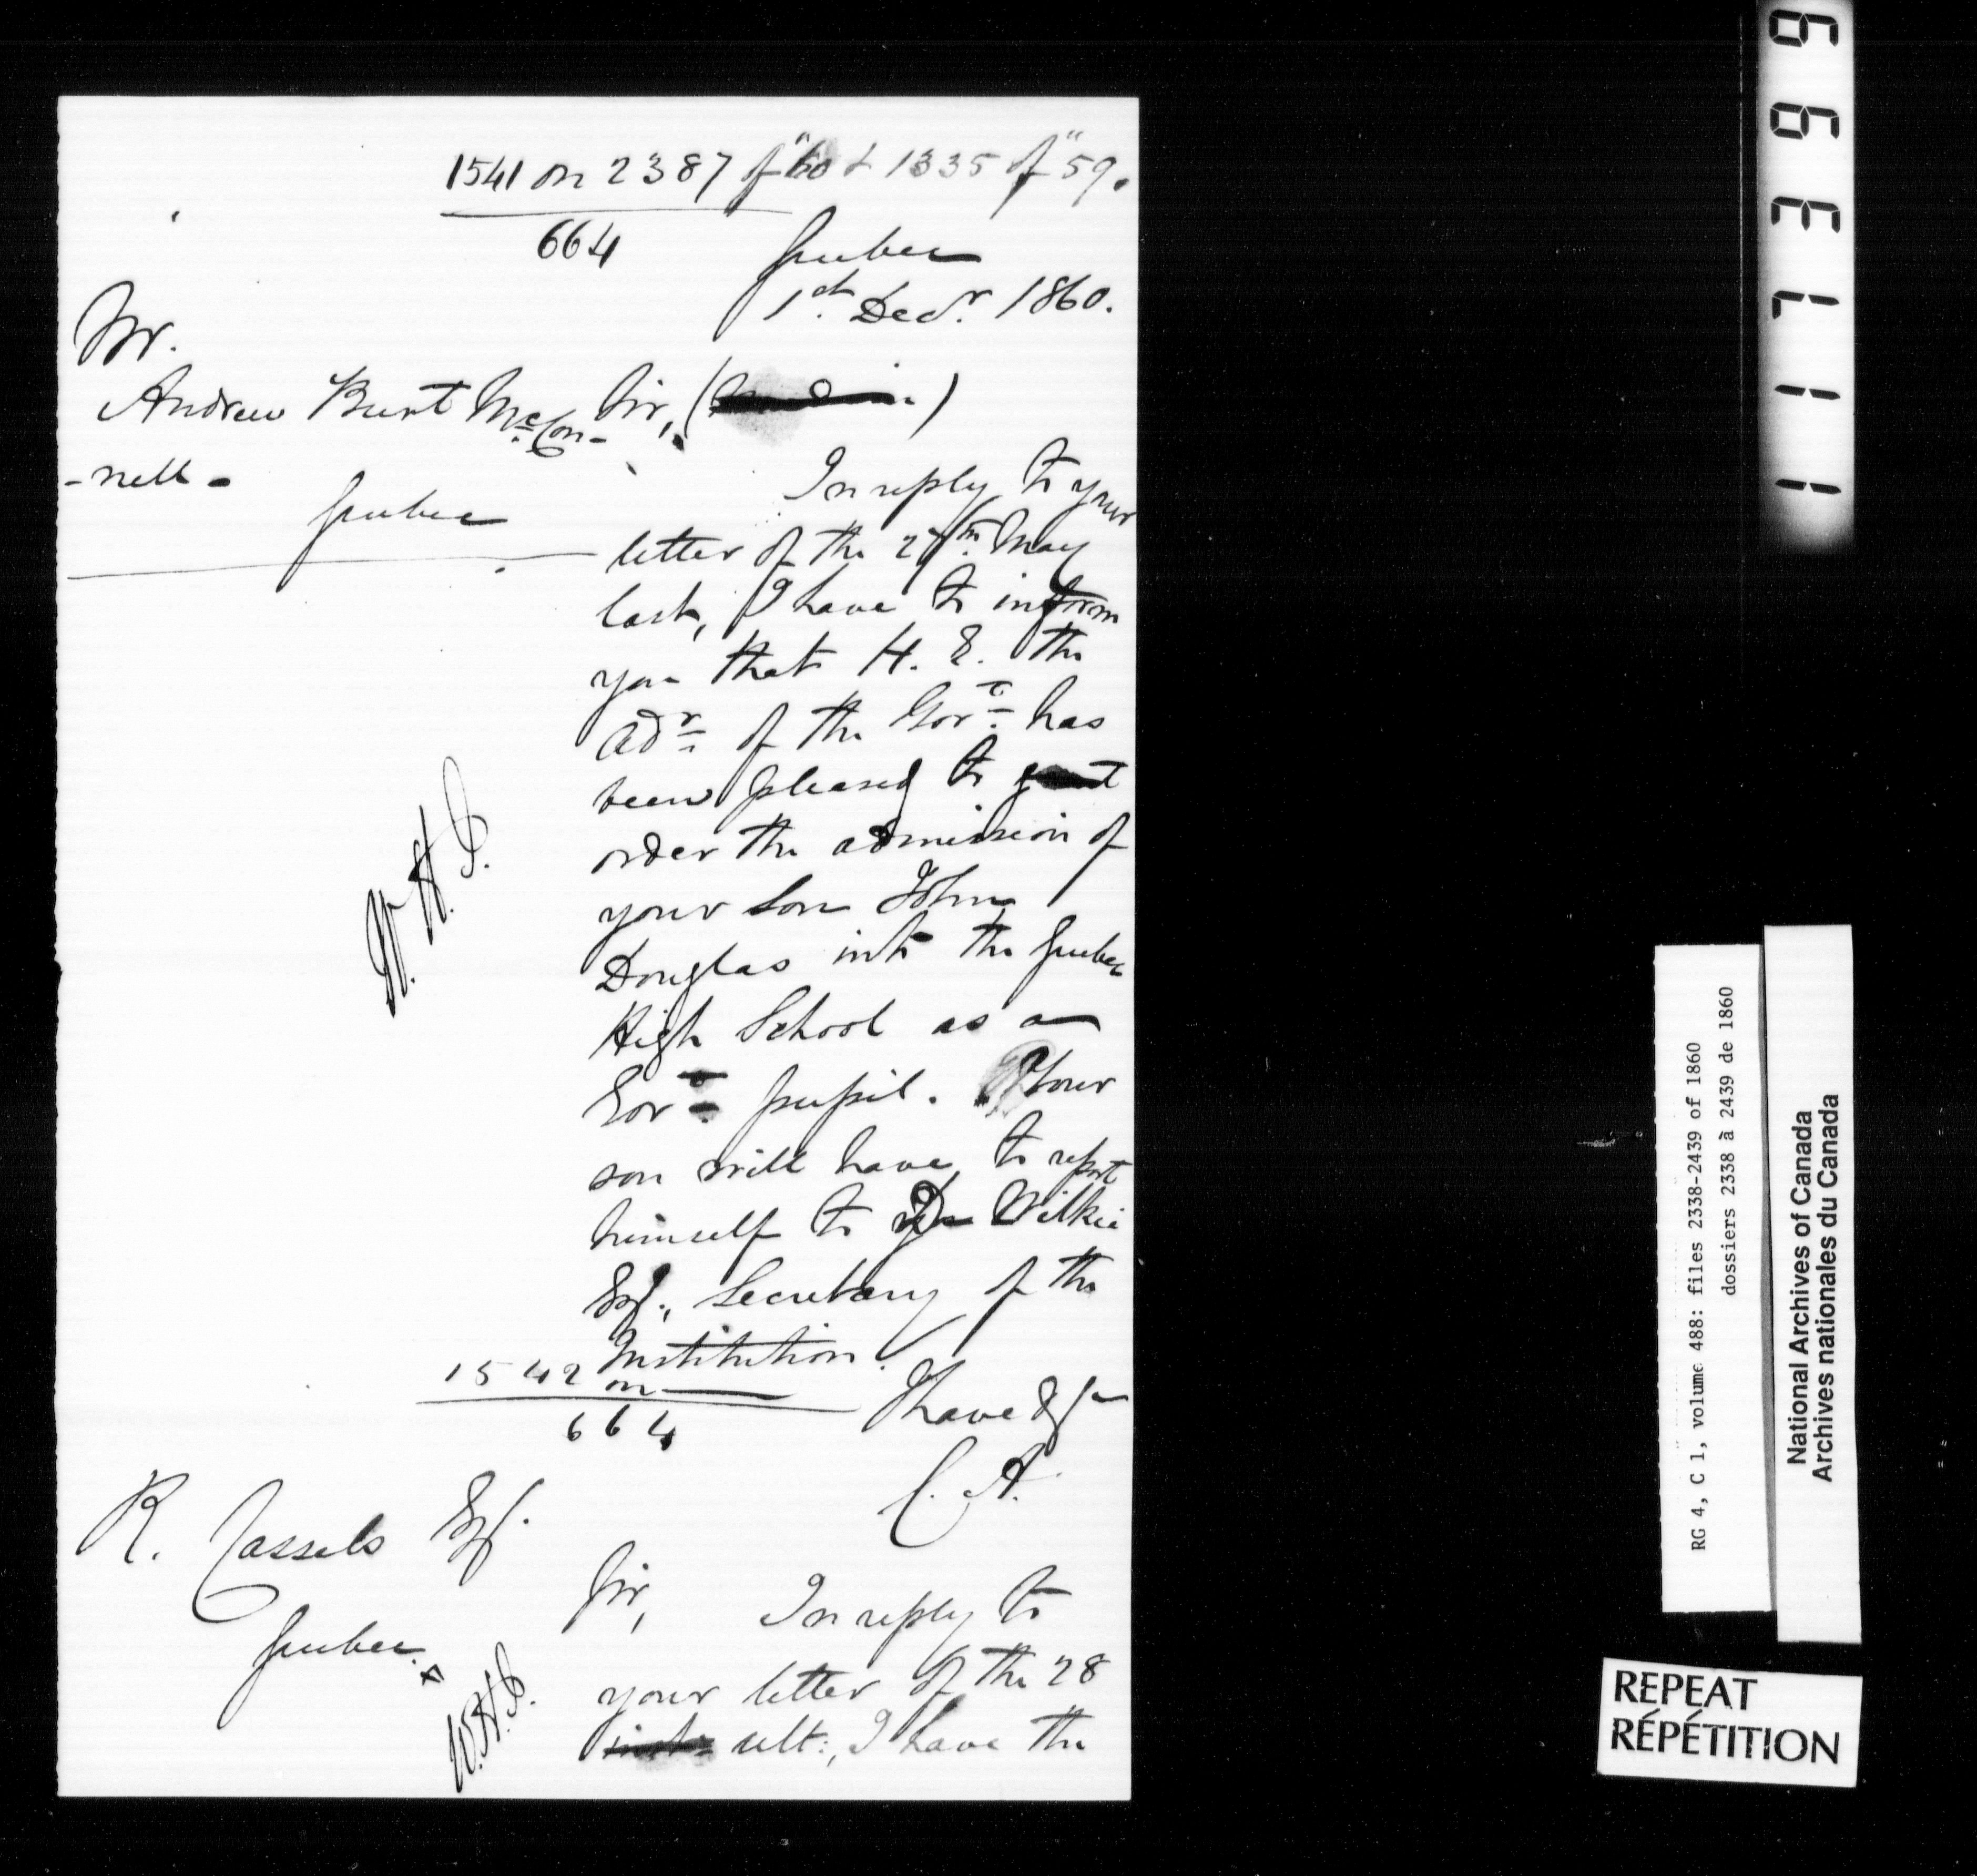 1541 on 2387 of "60 & 1335 of "59.
664
Quebec
1st. Decr. 1860.
Mr.
Andrew Burt McCon-
-nell -
Quebec
Sir, ( )
In reply to your
letter of the 27th. May
last, I have to inform
you that H. E. the
Adr. of the Govt. has
been pleased to grant
order the admission of
your son John
Douglas into the Quebec
High School as a
Gov pupil. Your
son will have to report
himself to D Wilkie
Esq., Secretary of the
Institution.
I have &c
C. A.
W. H. J.
1542 on
664
R. Cassels Esq.
Quebec.
W. H. J.
Sir, In reply to
your letter of the 28
inst ult:, I have the
1171 3699
RG 4, C 1, volume 488: files 2338-2439 of 1860
dossiers 2338 à 2439 de 1860
National Archives of Canada
Archives nationales du Canada
REPEAT
RÉPÉTITION